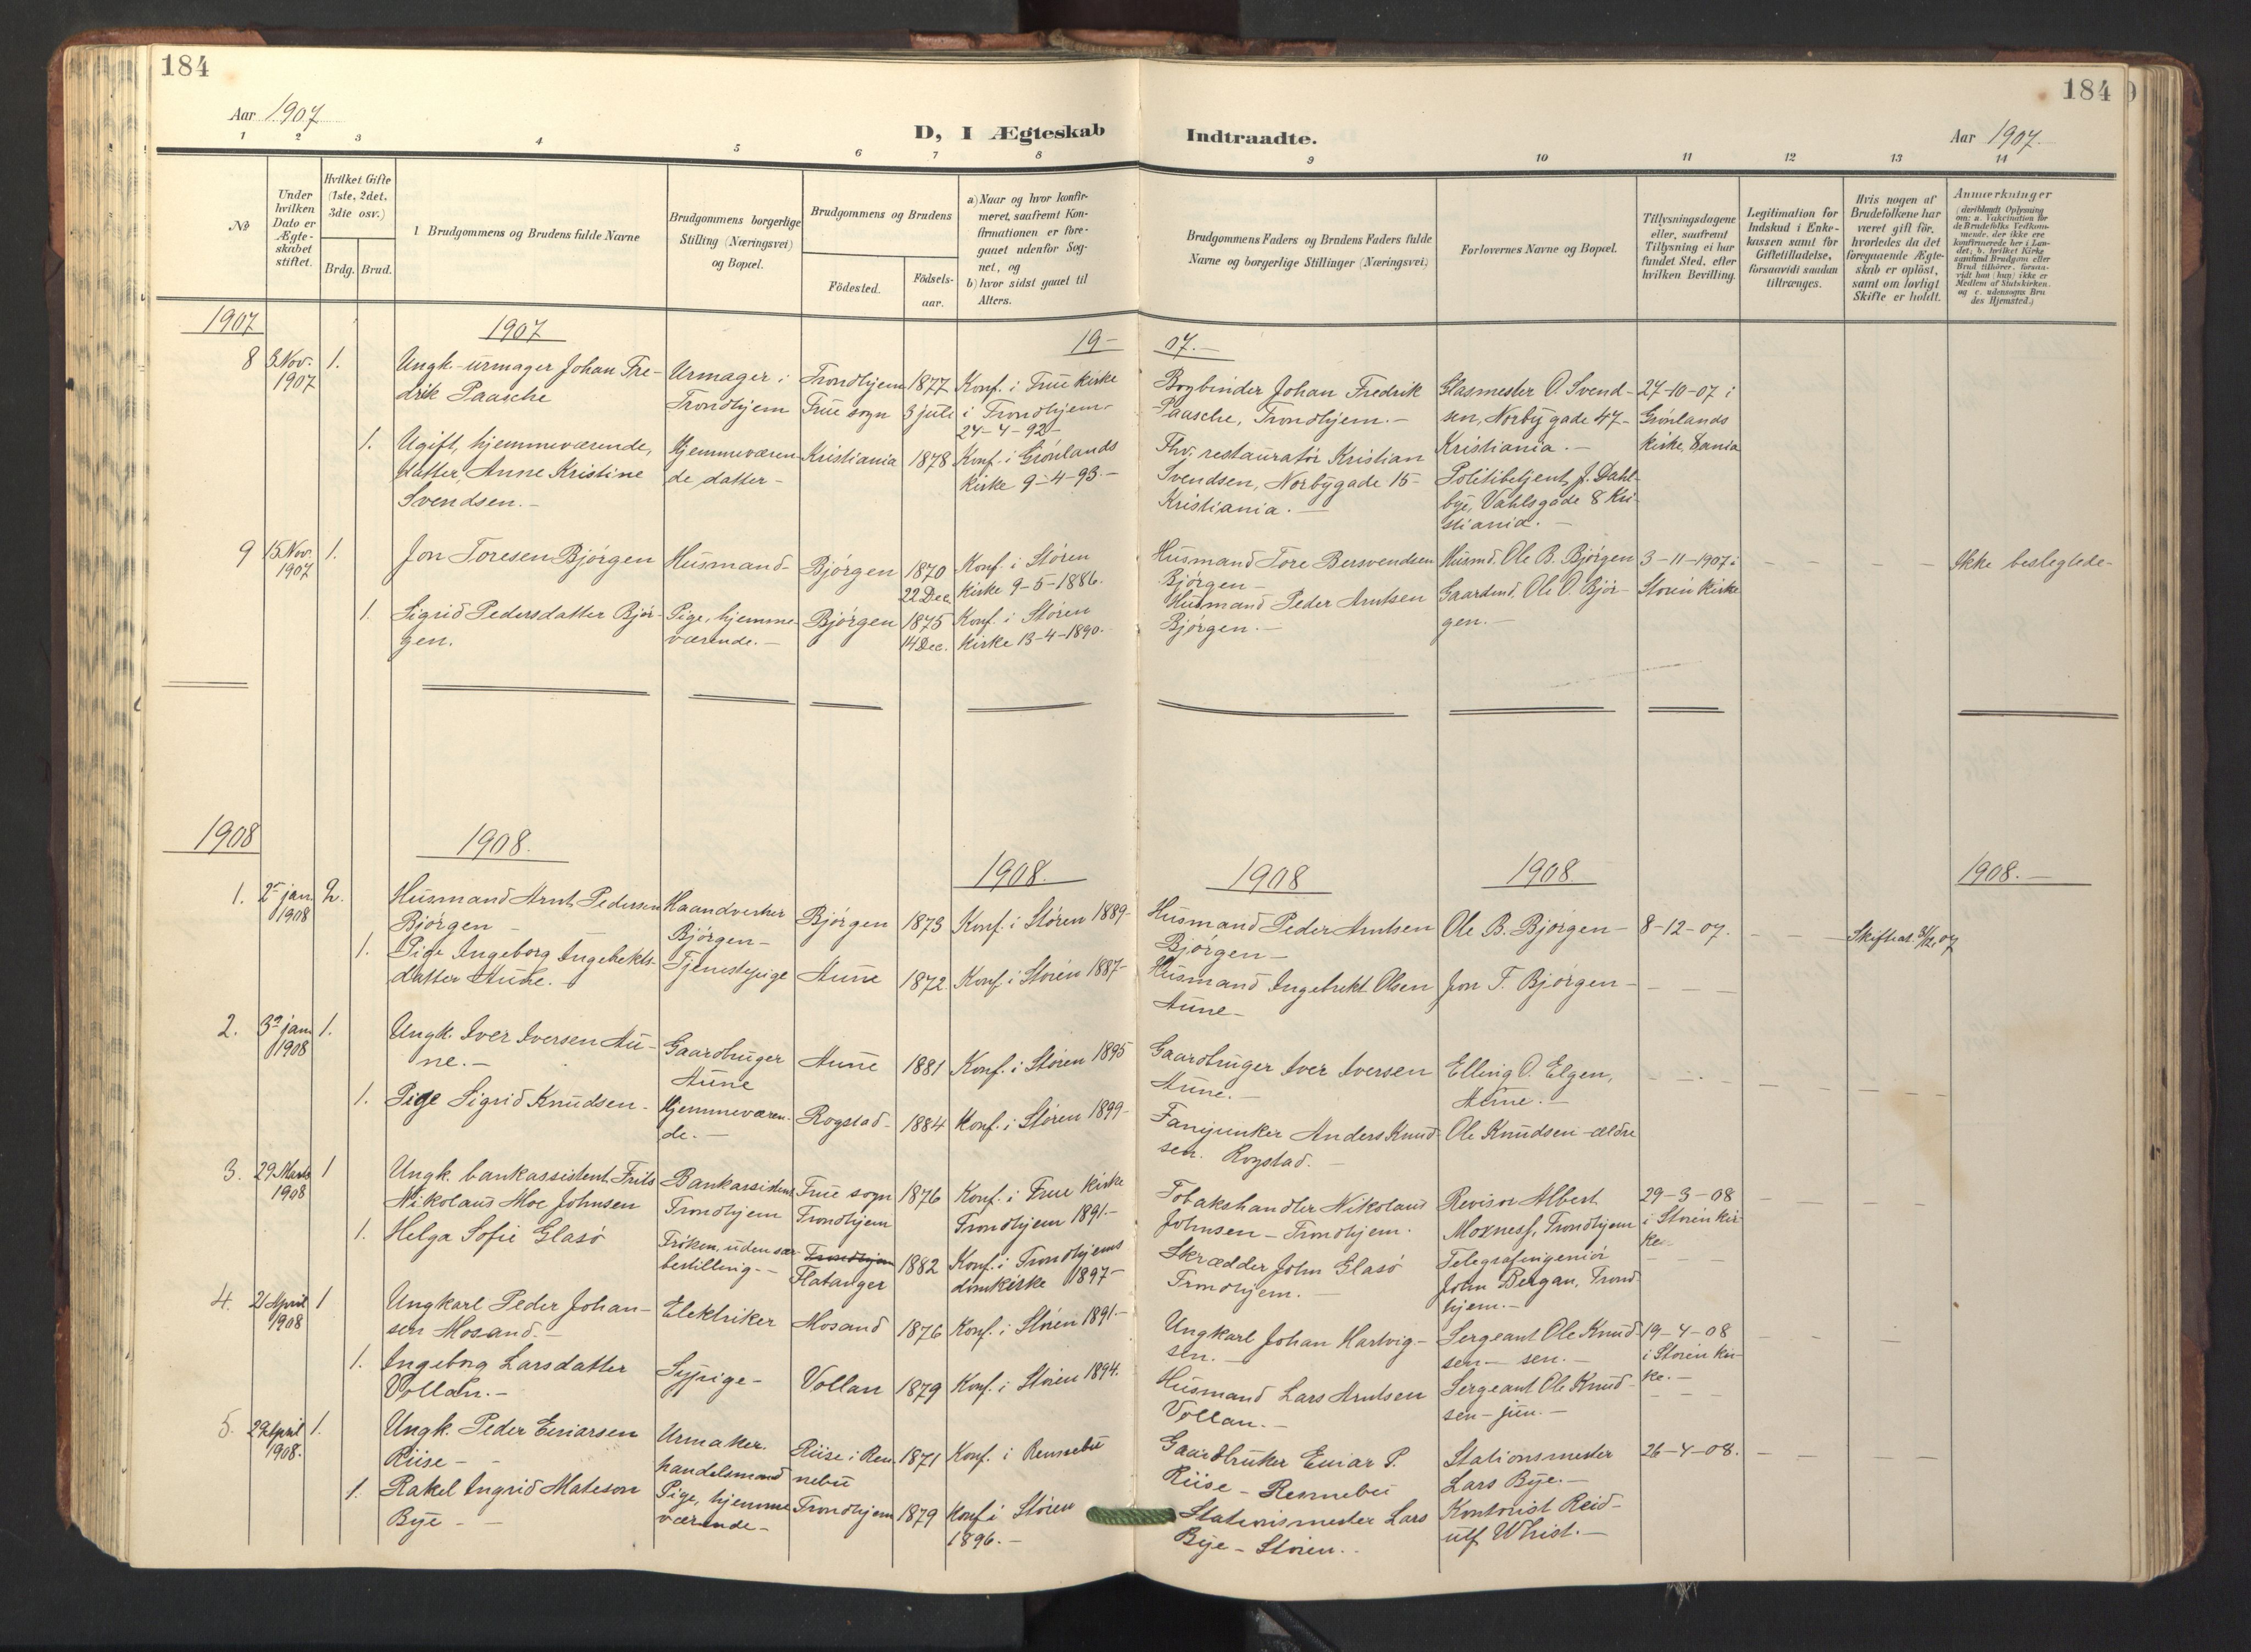 184
184
Aar 1907
D, I Ægteskab
Indtraadte.
Aar 1907.
1 2 3 4 5 6 7 8 9 10 11 12 13 14
No
Under
hvilken
Dato er
Ægte-
skabet
stiftet.
Hvilket Gifte
(1ste, 2det,
3die osv.)
Brdg. Brud.
Brudgommens og Brudens fulde Navne
Brudgommens borgerlige
Stilling (Næringsvei)
og Bopæl.
Brudgommens og Brudens
Födested.
Födsels-
aar.
a) Naar og hvor konfir-
meret, saafremt Kon-
firmationen er fore-
gaaet udenfor Sog-
net, og
b) hvor sidst gaaet til
Alters.
Brudgommens Faders og Brudens Faders fulde
Navne og borgerlige Stillinger (Næringsvei)
Forlovernes Navne og Bopæl.
Tillysningsdagene
eller, saafremt
Tillysning ei har
fundet Sted, efter
hvilken Bevilling.
Legitimation for
Indskud i Enke-
kassen samt for
Giftetilladelse,
forsaavidt saadan
tiltrænges.
Hvis nogen af
Brudefolkene har
været gift för,
hvorledes da det
foregaaende Ægte-
skab er oplöst,
samt om lovligt
Skifte er holdt.
Anmærkninger
(deriblandt Oplysning
om: a. Vakcination for
de Brudefolks Vedkom-
mende, der ikke ere
konfirmerede her i Lan-
det; b. hvilket Kirke-
samfund Brudgom eller
Brud tilhörer, forsaa-
vidt han (hun) ikke er
Medlem af Statskirken,
og c. udensogns Bru-
des Hjemsted.)
1907
1907
19-
07.-
8
3. Nov.
1907
1.
Ungk. urmager Johan Fre-
drik Paasche
Urmager i
Trondhjem
Trondhjem
Frue sogn
1877
3 juli
Konf. i Frue kirke
i Trondhjem
24-4-92-
Bogbinder Johan Fredrik
Paasche, Trondhjem.-
Glasmester O. Svend-
sen, Norbygade 47-
Kristiania.-
27-10-07 i
Grønlands
kirke,
1.
Ugift, hjemmeværende,
datter, Anne Kristine
Svendsen.-
Hjemmeværen-
de datter-
Kristiania
1878
Konf. i Grønlands
kirke 9-4-93.-
Fhv. restauratør Kristian
Svendsen, Norbygade 15-
Kristiania.-
Politibetjent J. Dahl-
bye, Vahlsgade 8 Kri-
stiania.-
9
15. Nov.
1907
1.
Jon Toresen Bjørgen
Husmand-
Bjørgen
1870
22 Dec.
Konf. i Støren
kirke 9-5-1886.
Husmand Tore Bersvendsen
Bjørgen-
Husmd. Ole B. Bjørgen
3-11-1907 i
Støren kirke
- - - -
Ikke beslegtede-
1.
Sigrid Pedersdatter Bjør-
gen.
Pige, hjemme-
værende.-
Bjørgen
1875
14 Dec.
Konf. i Støren
kirke 13-4-1890.-
Husmand Peder Arntsen
Bjørgen.-
Gaardmd. Ole O. Bjør-
gen.-
1908
1908.
1908.
1908
1908
1908.-
1.
2. jan.
1908
2.
Husmand Arnt Pedersen
Bjørgen -
Haandverker
Bjørgen-
Bjørgen
1873
Konf. i Støren 1889-
Husmand Peder Arntsen
Bjørgen-
Ole B. Bjørgen-
8-12-07.
- - -
Skifteat. 31/12 07
1.
Pige Ingeborg Ingebrikts-
datter Aune.-
Tjenestepige
Aune
1872
Konf. i Støren 1887-
Husmand Ingebrikt Olsen
Aune-
Jon T. Bjørgen-
- - -
2.
3. jan.
1908
1.
Ungk. Iver Iversen Au-
ne.-
Gaardbruger
Aune
Aune
1881
Konf. i Støren 1895
Gaardbruger Iver Iversen
Aune.-
Elling O. Elgen,
Aune.-
- - - - - - -
1.
Pige Sigrid Knudsen-
Hjemmeværen-
de.-
Rogstad-
1884
Konf. i Støren 1899-
Fanejunker Anders Knud-
sen. Rogstad.-
Ole Knudsen-ældre
3.
29 Marts
1908
1
Ungk. bankassistent Frits
Nikolaus Moe Johnsen
Bankassistent
Trondhjem
Frue sogn
Trondhjem
1876
Konf. i Frue kirke
Trondhjem 1891.-
Tobakshandler Nikolaus
Johnsen - Trondhjem.
Revisor Albert
Moxness, Trondhjem
29-3-08
i Støren kir-
ke.
- - - -
1.
Helga Sofie Glasø
Frøken, uden sær-
bestilling.-
Trondhjem
Flatanger
1882
Konf. i Trondhjems
domkirke 1897-
Skrædder John Glasø
Trondhjem.-
Telegrafingeniør
John Bergan, Trond-
hjem.-
4.
21 April
1908
1
Ungkarl Peder Johan-
sen Mosand.-
Elektriker
Mosand
1876
Konf. i Støren 1891.-
Ungkarl Johan Hartvig-
sen.-
Sergeant Ole Knud-
sen- sen.-
19-4-08
i Støren kir-
ke.-
- - - -
1.
Ingeborg Larsdatter
Vollan.-
Sypige-
Vollan
1879
Konf. i Støren 1894.
Husmand Lars Arntsen
Vollan.-
Sergeant Ole Knud-
sen-jun.-
5.
29 April
1908.
1.
Ungk. Peder Einarsen
Riise- -
Urmaker.
handelsmand
Riise i Ren-
nebu
1871
Konf. i Rennebu
Gaardbruker Einar P.
Riise - Rennebu
Stationsmester
Lars Bye.-
26-4-08.
- - - -
1.
Rakel Ingrid Mateson
Bye - -
Pige, hjemme
værende-
Trondhjem
1879
Konf i Støren
1896.-
Stationsmester Lars
Bye - Støren..
Kontorist Reid-
ulf Whist.-